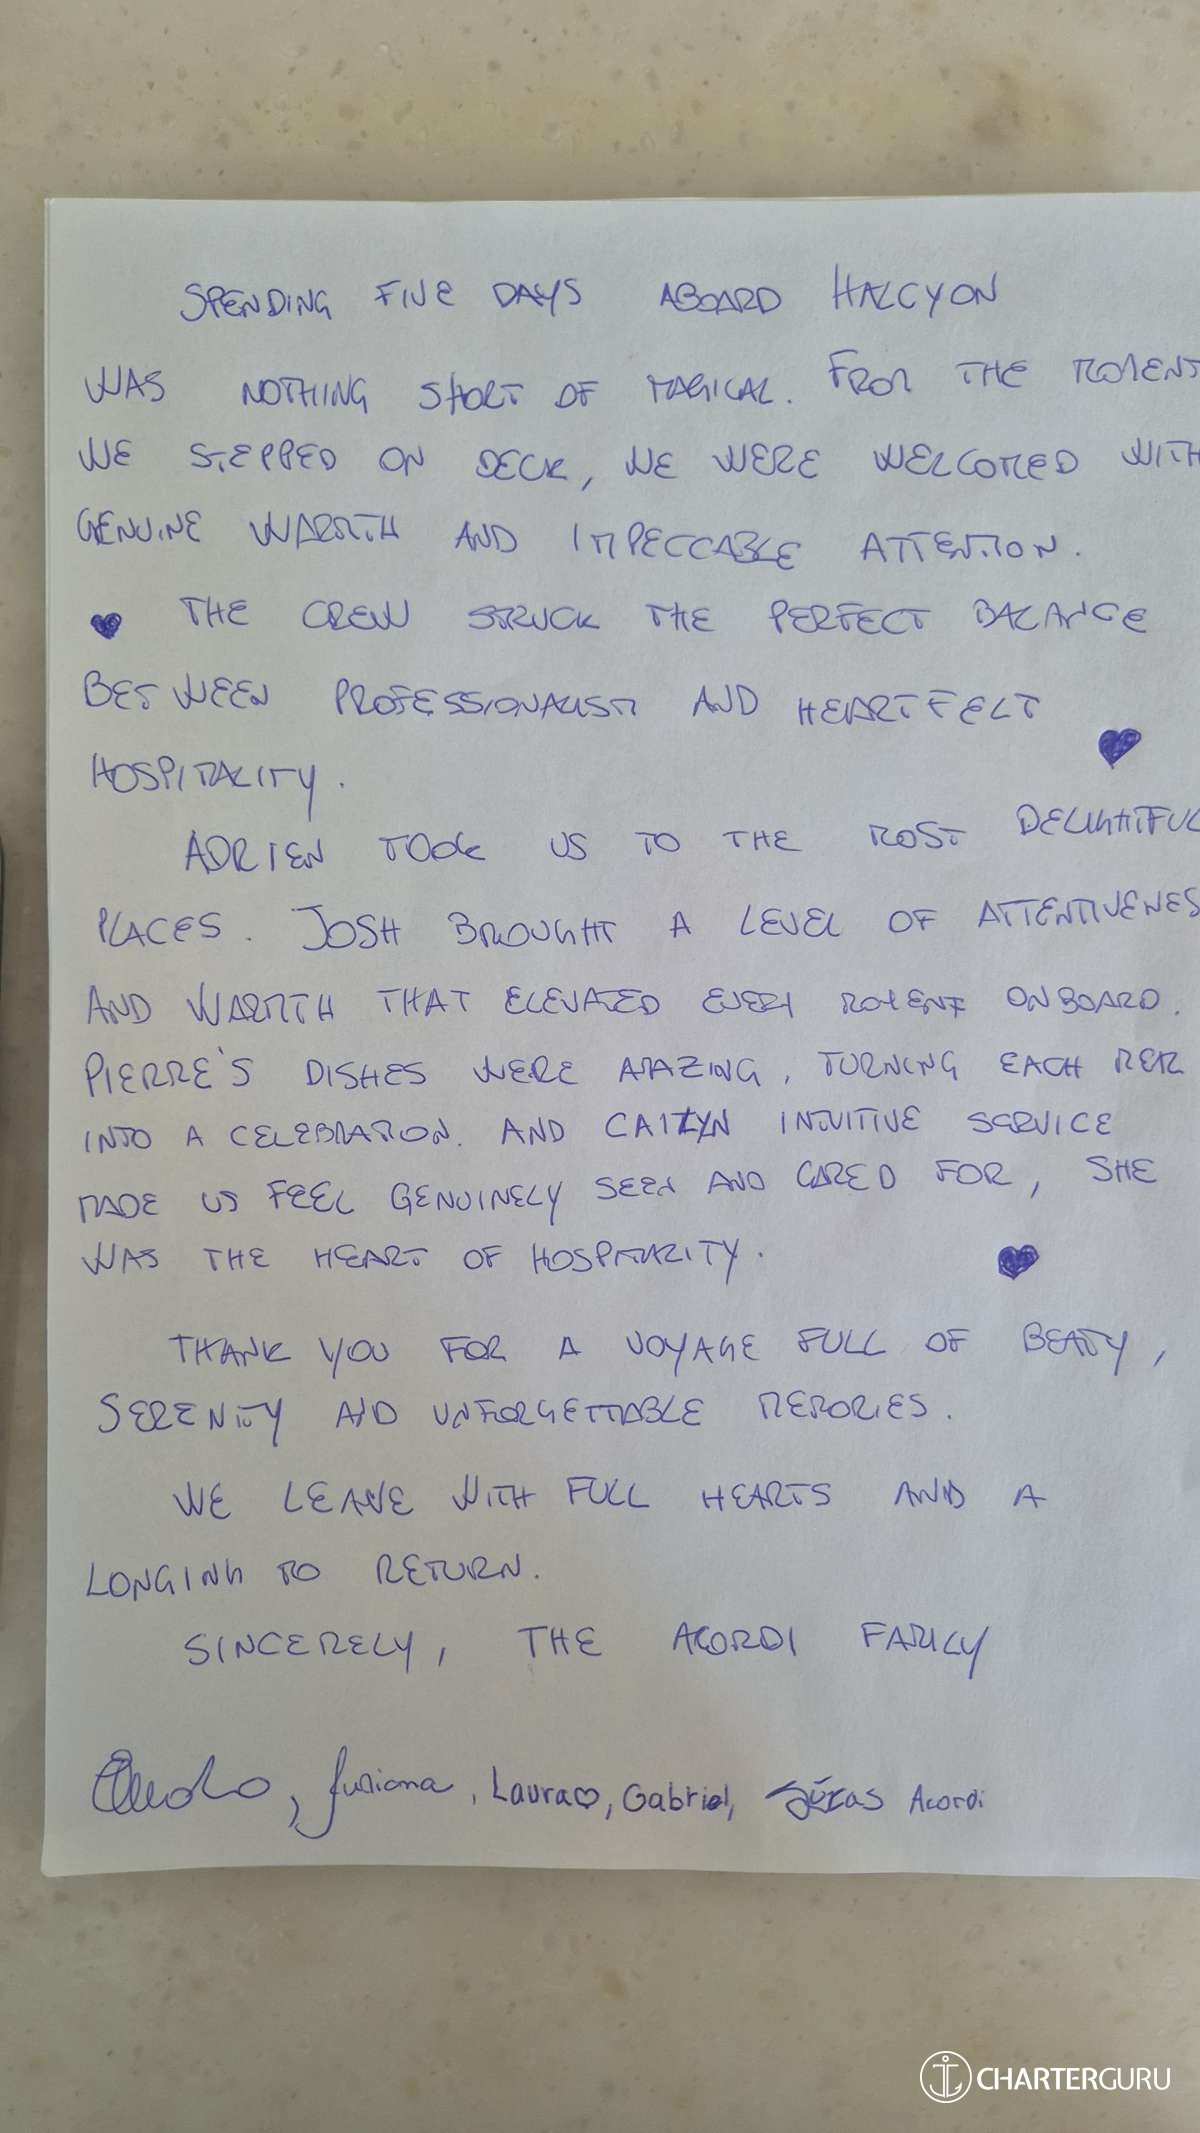 SPENDING FIVE DAYS ABOARD HALCYON
WAS NOTHING SHORT OF MAGICAL. FROM THE MOMENT
WE STEPPED ON DECK, WE WERE WELCOMED WITH
GENUINE WARMTH AND IMPECCABLE ATTENTION.
THE CREW STRUCK THE PERFECT BALANCE
BETWEEN PROFESSIONALISM AND HEARTFELT
HOSPITALITY.
ADRIEN TOOK US TO THE MOST DELIGHTFUL
PLACES. JOSH BROUGHT A LEVEL OF ATTENTIVENES
AND WARMTH THAT ELEVATED EVERY MOMENT ONBOARD.
PIERRE'S DISHES WERE AMAZING, TURNING EACH MEAL
INTO A CELEBRATION. AND CAITLYN INTUITIVE SERVICE
MADE US FEEL GENUINELY SEEN AND CARED FOR, SHE
WAS THE HEART OF HOSPITALITY.
THANK YOU FOR A VOYAGE FULL OF BEATY,
SERENITY AND UNFORGETTABLE MEMORIES.
WE LEAVE WITH FULL HEARTS AND A
LONGING TO RETURN.
SINCERELY, THE ACORDI FAMILY
Juliana, Laura, Gabriel, Acordi
CHARTERGURU